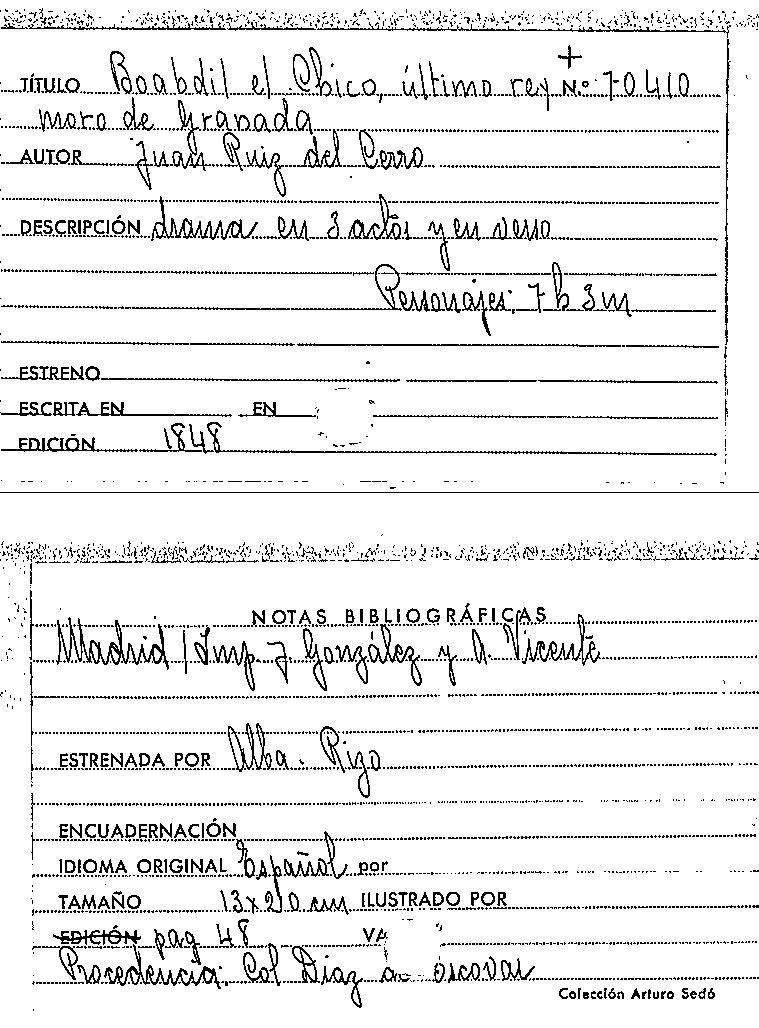 +
TÍTULO Boabdil el Chico, último rey N.º 70410
moro de Granada
AUTOR Juan Ruiz del Cerro
DESCRIPCIÓN drama en 3 actos y en verso
Personajes: 7 h 3 m
ESTRENO
ESCRITA EN EN
EDICIÓN 1848
NOTAS BIBLIOGRÁFICAS
Madrid / Imp. J. González y A. Vicente
ESTRENADA POR Alba. Rizo
ENCUADERNACIÓN
IDIOMA ORIGINAL Español por
TAMAÑO 13x20 cm ILUSTRADO POR
EDICIÓN pag 48 VA
Procedencia: Col Diaz
Colección Arturo Sedó